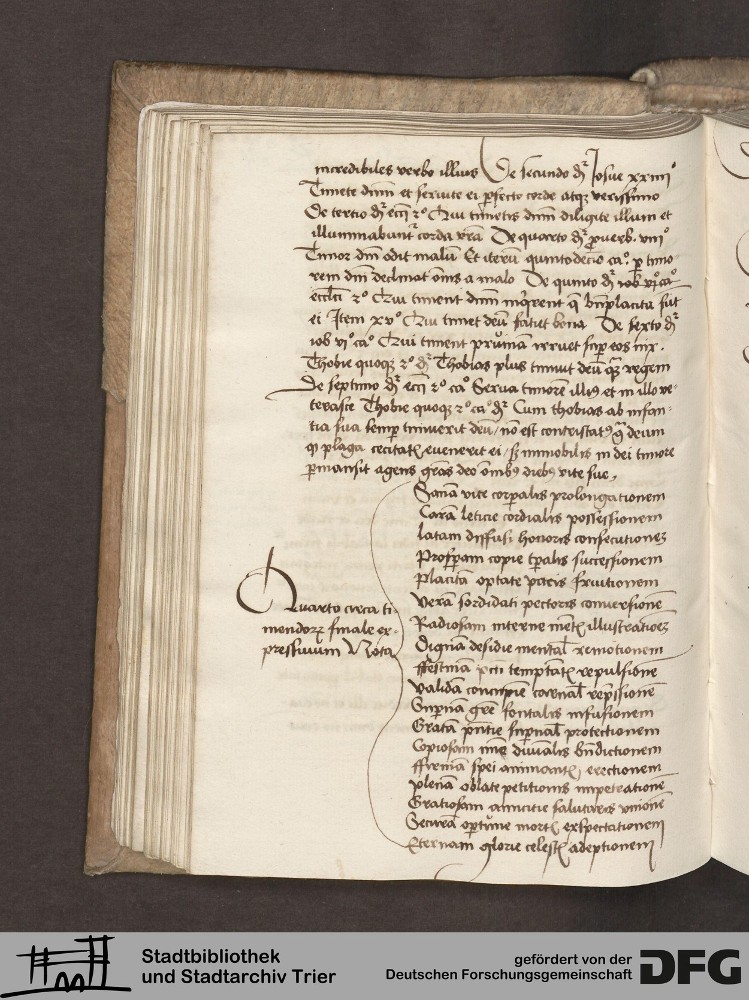 incredibiles verbo illius De secundo dr Josue xxiiii°
Timete dnm et servite ei perfecto corde atque verissimo
De tertio dr ecci 2° Qui timetis dnm diligite illum et
illuminabuntr corda vra De quarto dr proverb. viii°
Timor dni odit malu Et iteru quintodecio ca° per timo-
rem dni declinat omis a malo De quinto dr
eccli 2° Qui timent dnm inqrent q bnplacita sut
ei Item xv° Qui timet deu faciet bona De sexto dr
iob vi° ca° Qui timent pruina irruet super eos nix.
Thobie quoque 2° dr Thobias plus timuit deu quam regem
De septimo dr ecci 2° ca° Serva timore illius et in illo ve-
terasce Thobie quoque 2° ca° dr Cum thobias ab infan-
tia sua semper timuerit deu / no est contristatus contra deum
qd plaga cecitatis evenerit ei / sed immobilis in dei timore
permansit agens gras deo omibus diebus vite sue.
Sana vite corporalis prolongationem
Cara leticie cordialis possessionem
Latam diffusi honoris consecutionem
Prosperam copie temporalis successionem
Placita optate pacis fruitionem
Quarto circa ti-
mendorum finale ex-
pressivum Nota
Vera sordidati pectoris conversione
Radiosam interne mentis illustratioem
Digna desidie mental remotionem
ffestina pcti temptatis repulsione
Valida concupie carnal repressione
Superna gre fontalis infusionem
Grata pntie supernal protectionem
Copiosam divinalis bndictionem
ffirma spei animantis erectionem
plena oblate petitionis impetratione
Gratiosam amicitie salutaris unione
Secura oportune mortis exspectationem
Eternam glorie celestis adeptionem
Stadtbibliothek
und Stadtarchiv Trier
gefördert von der
Deutschen Forschungsgemeinschaft
DFG